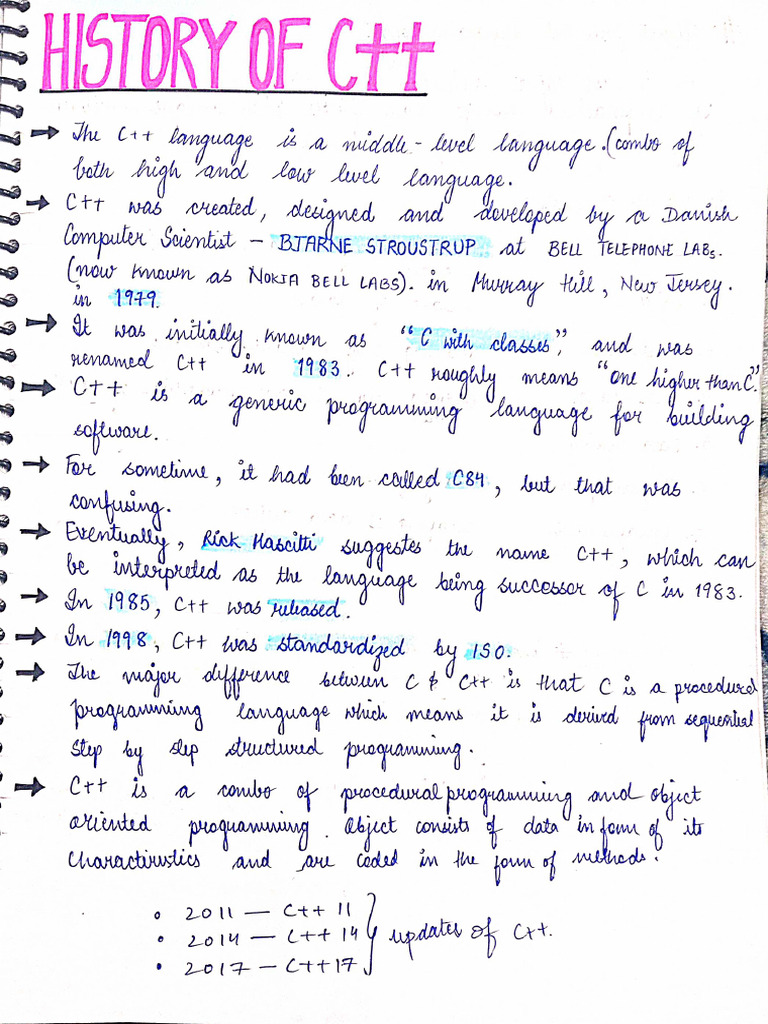 HISTORY OF C++
→ The C++ language is a middle-level language.(combo of
both high and low level language.
→ C++ was created, designed and developed by a Danish
Computer Scientist – BJARNE STROUSTRUP at BELL TELEPHONE LABs.
(now known as NOKIA BELL LABS). in Murray Hill, New Jersey.
in 1979.
→ It was initially known as "C with classes", and was
renamed C++ in 1983. C++ roughly means "one higher than C".
→ C++ is a generic programming language for building
software.
→ For sometime, it had been called C84, but that was
confusing.
→ Eventually, Rick Mascitti suggestes the name C++, which can
be interpreted as the language being successor of C in 1983.
→ In 1985, C++ was released.
→ In 1998, C++ was standardized by ISO.
→ The major difference between C & C++ is that C is a procedural
programming language which means it is derived from sequential
step by step structured programming.
→ C++ is a combo of procedural programming and object
oriented programming. Object consists of data in form of its
charactiristics and are coded in the form of methods.
• 2011 — C++ 11
• 2014 — C++ 14 } updates of C++.
• 2017 — C++17